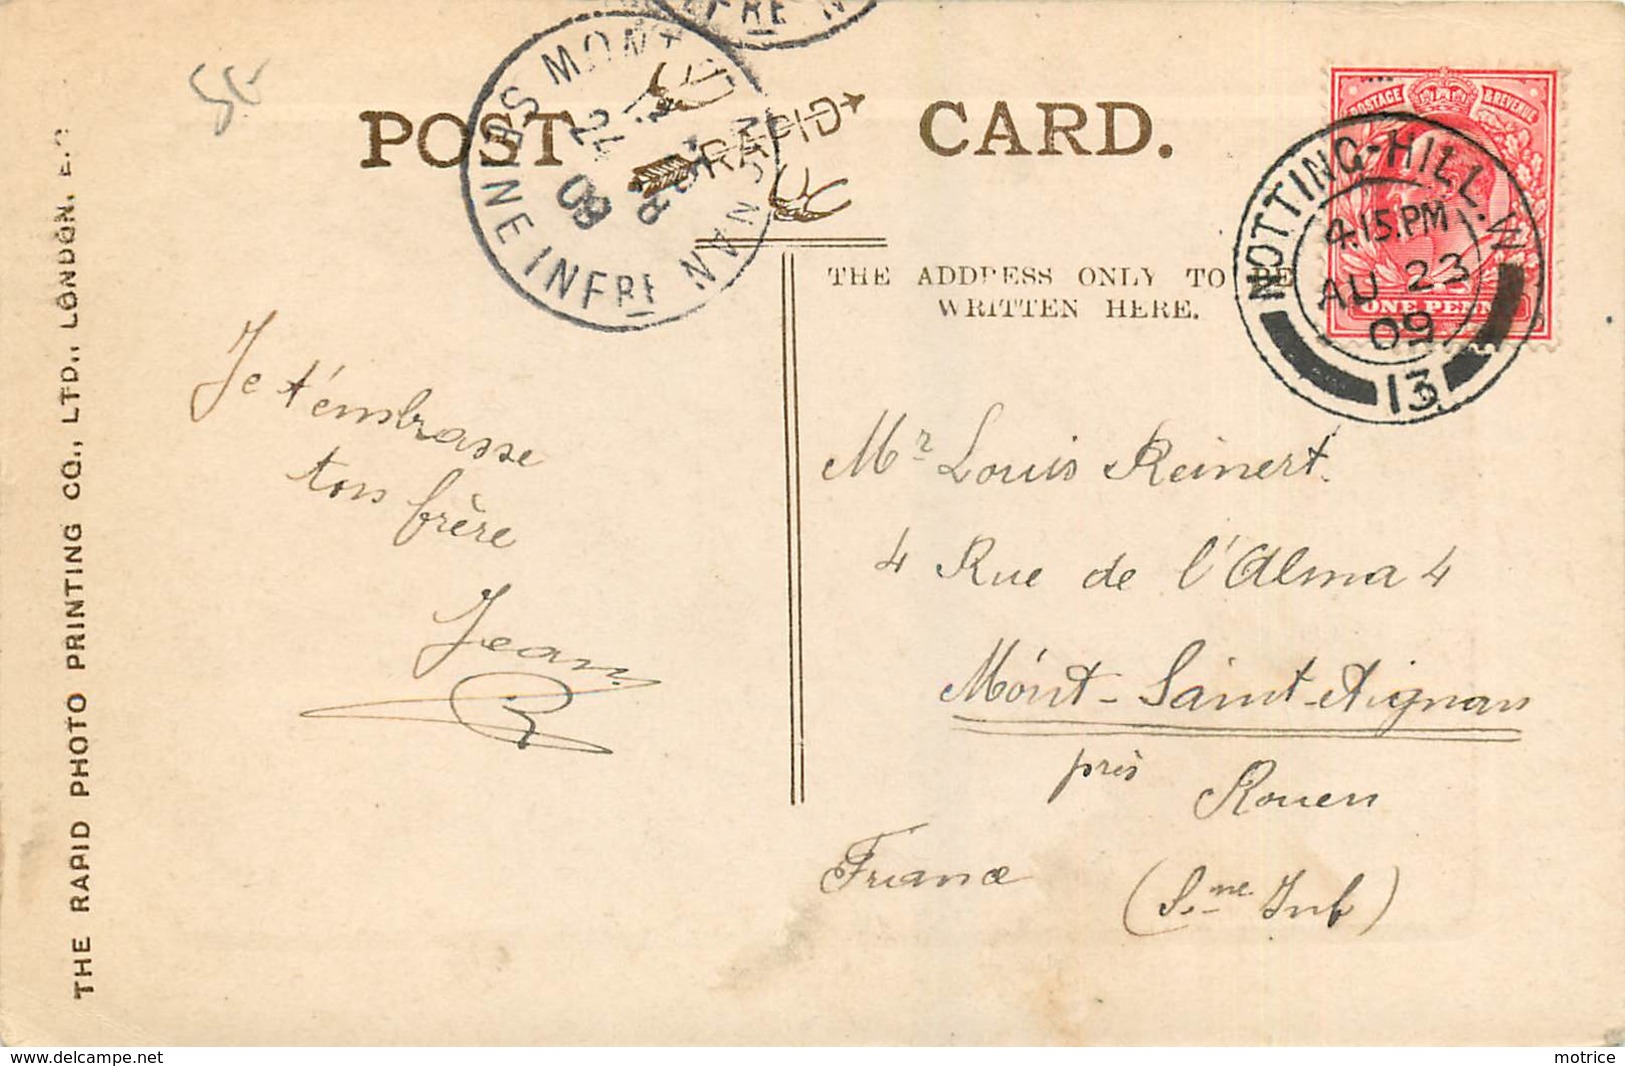 POST CARD.
RAPID
THE ADDRESS ONLY TO BE
WRITTEN HERE.
POSTAGE & REVENUE
ONE PENNY
NOTTING-HILL. W
4.15.PM
AU 23
09
13
24
09
SEINE INFRE
5€
Je t'embrasse
ton frère
Jean
R
Mr Louis Reinert.
4 Rue de l'Alma 4
Mont-Saint-Aignan
près Rouen
France (S.ne Inf)
THE RAPID PHOTO PRINTING CO., LTD., LONDON, E.C
www.delcampe.net
motrice